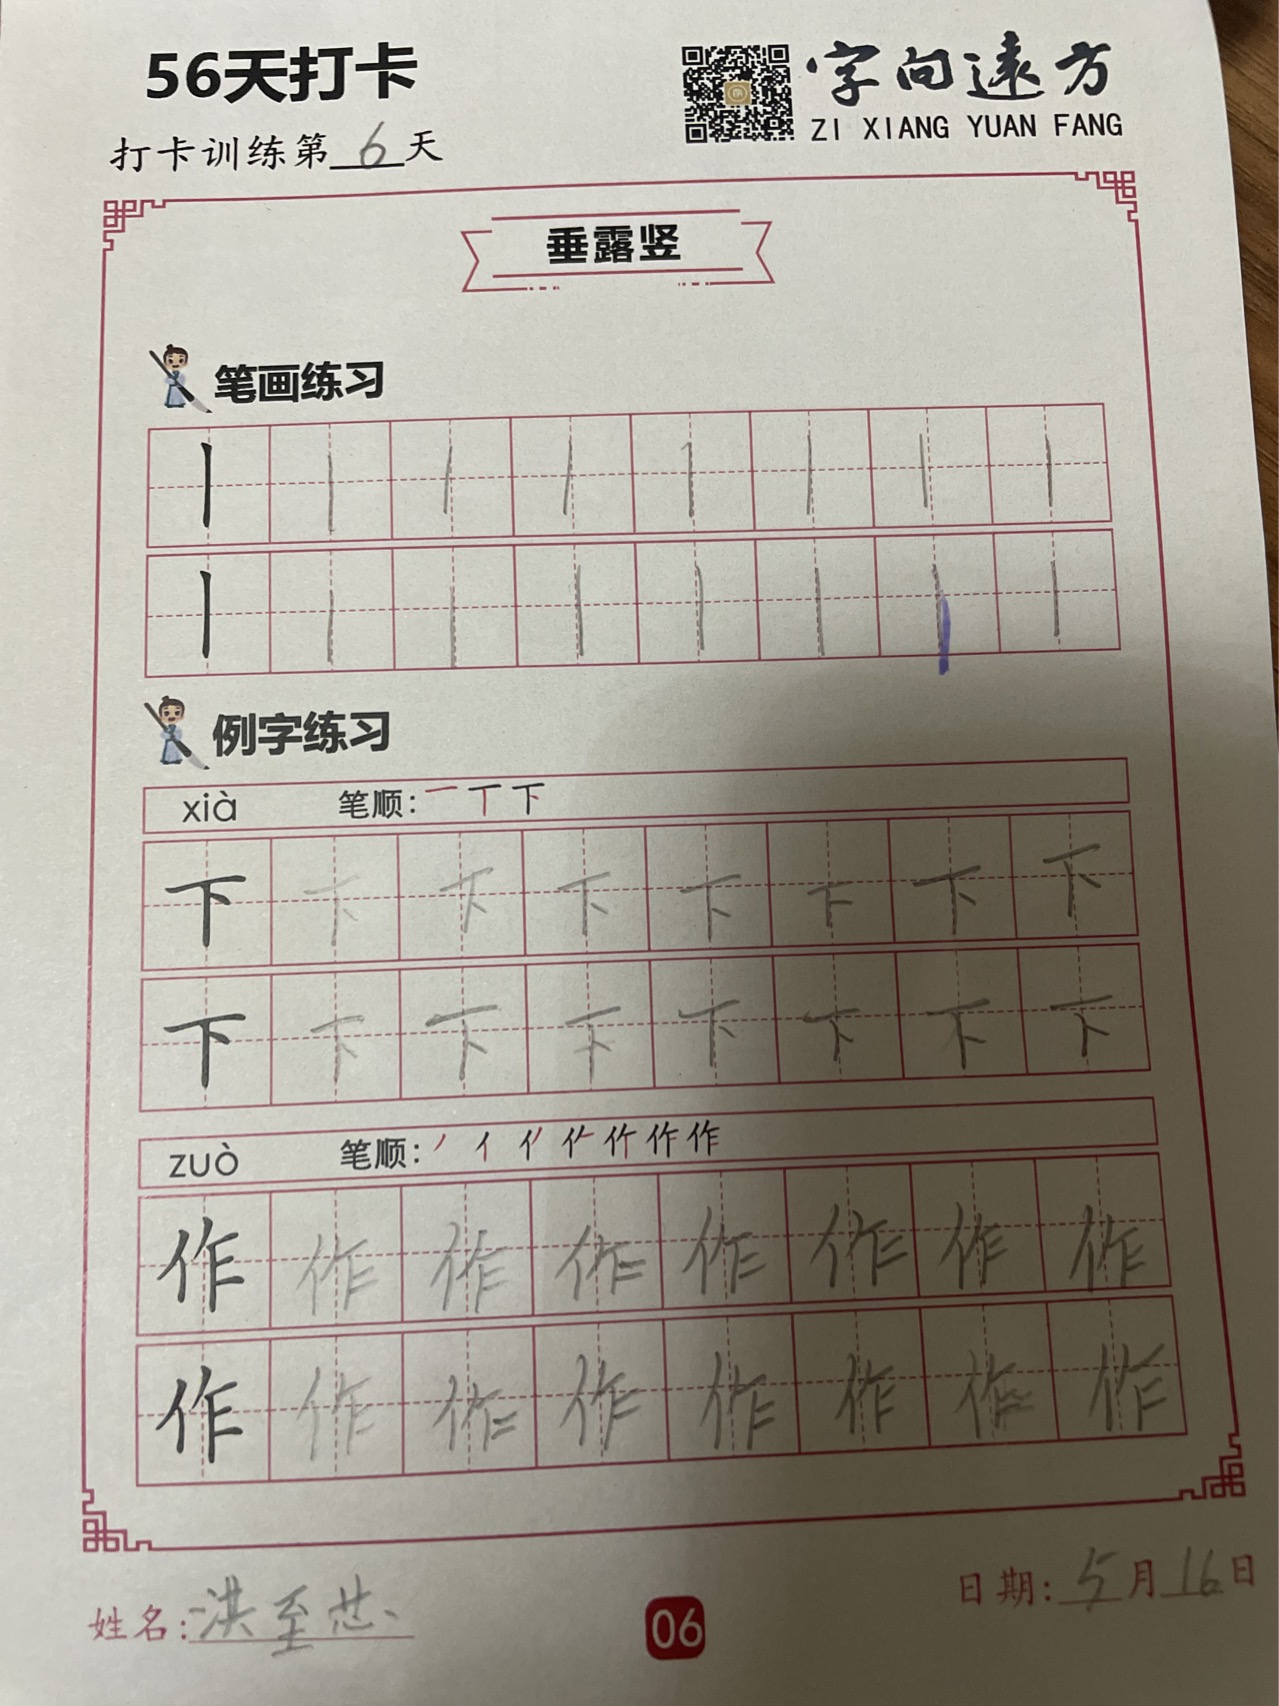 56天打卡
字向遠方
ZI XIANG YUAN FANG
打卡训练第6天
垂露竖
笔画练习
丨丨丨丨丨丨丨丨
丨丨丨丨丨丨丨丨
例字练习
xià 笔顺: 一丅下
下下下下下下下下
下下下下下下下下
zuò 笔顺: 作
作作作作作作作作
作作作作作作作作
姓名: 洪至芯
06
日期: 5月16日